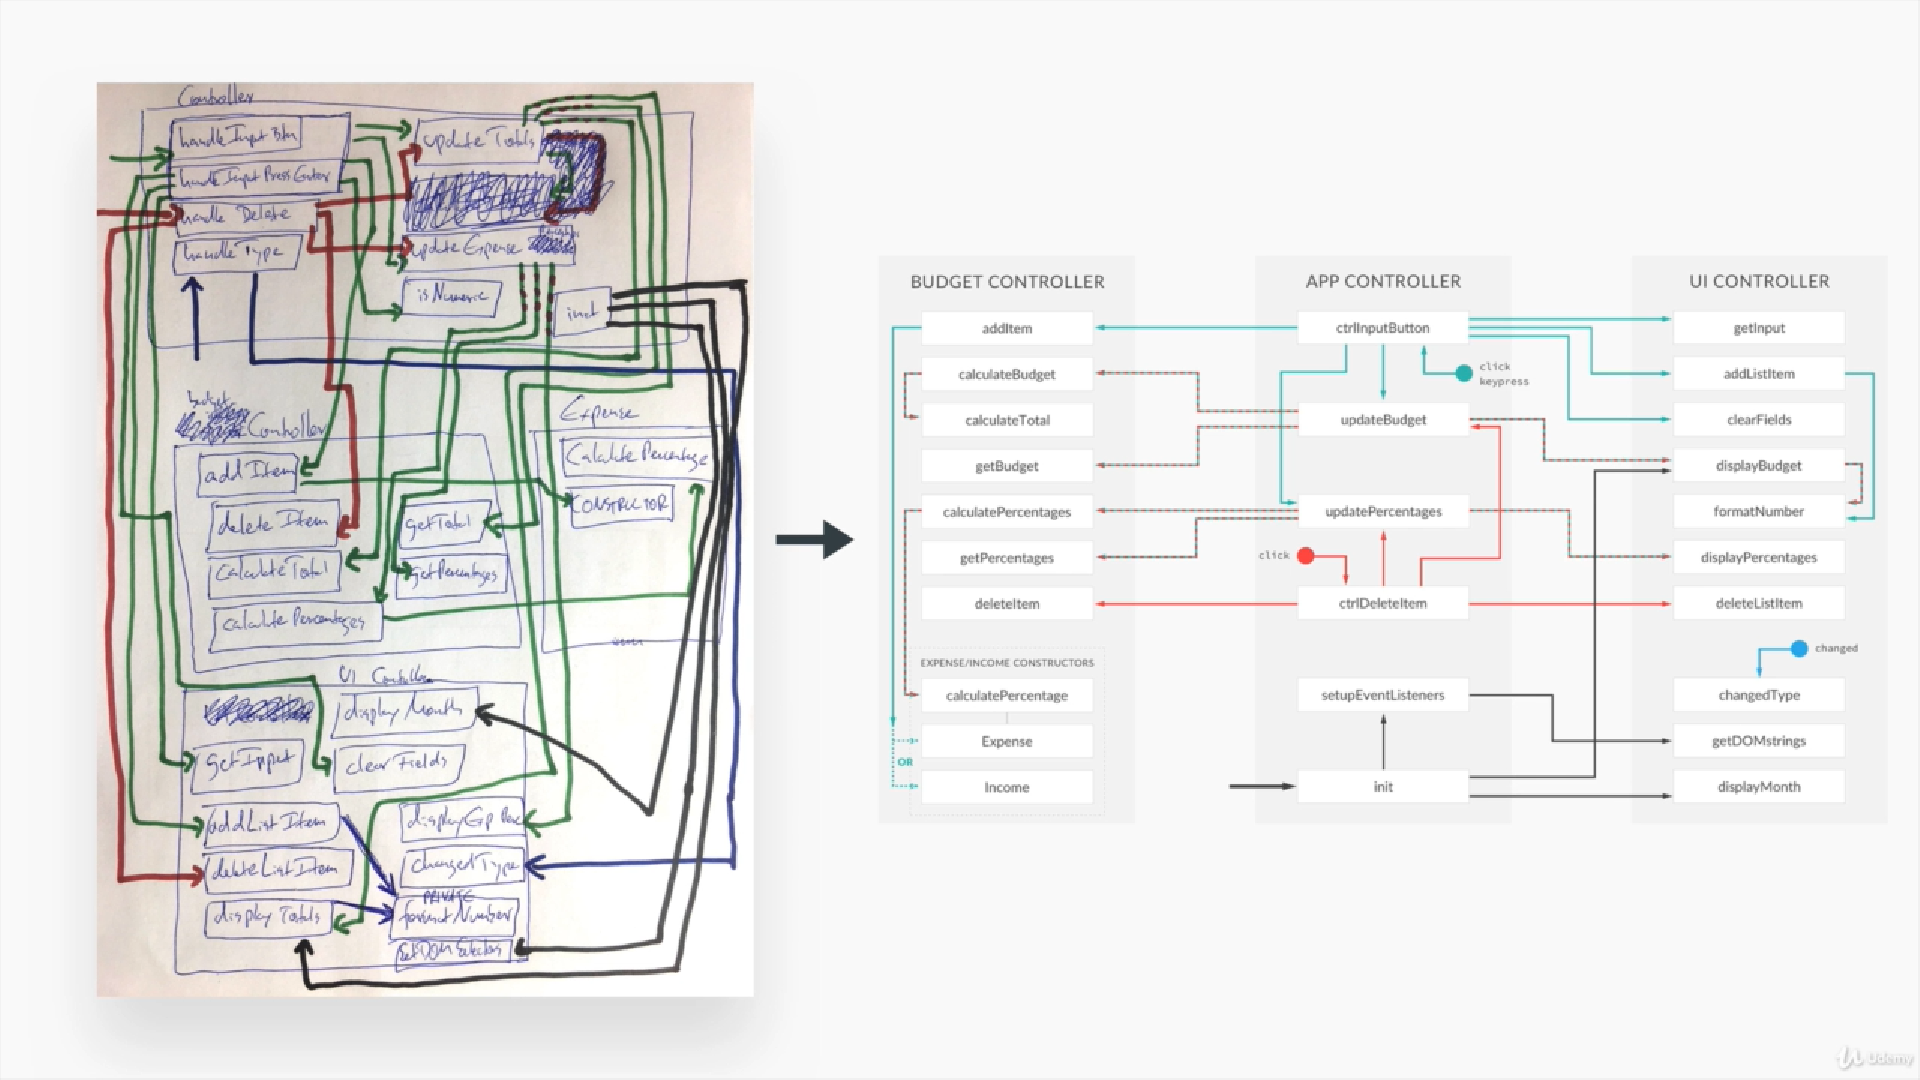 Controller
handle Input Btn
handle Input Press Enter
handle Delete
handle Type
update Totals
update Expense
isNumeric
init
budget
Controller
add Item
delete Item
Calculate Total
calculate Percentages
getTotal
getPercentages
Expense
Calculate Percentage
CONSTRUCTOR
UI Controller
display Month
getInput
clear Fields
addList Item
deleteListItem
display Totals
display Exp Perc
changedType
PRIVATE
formatNumber
BUDGET CONTROLLER
addItem
calculateBudget
calculateTotal
getBudget
calculatePercentages
getPercentages
deleteItem
EXPENSE/INCOME CONSTRUCTORS
calculatePercentage
Expense
OR
Income
APP CONTROLLER
ctrlInputButton
click
keypress
updateBudget
updatePercentages
click
ctrlDeleteItem
setupEventListeners
init
UI CONTROLLER
getInput
addListItem
clearFields
displayBudget
formatNumber
displayPercentages
deleteListItem
changed
changedType
getDOMstrings
displayMonth
Udemy